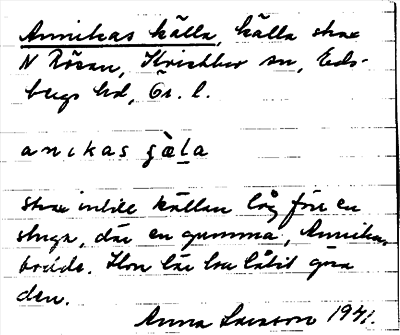 Annikas källa, källa strax
N Rösan, Kvistbro sn, Eds-
bergs hd, Ör. l.
anikas çèla
strax intill källan låg förr en
stuga, där en gumma, Annika,
bodde. Hon lär ha låtit göra
den.
Anna Larsson 1941.